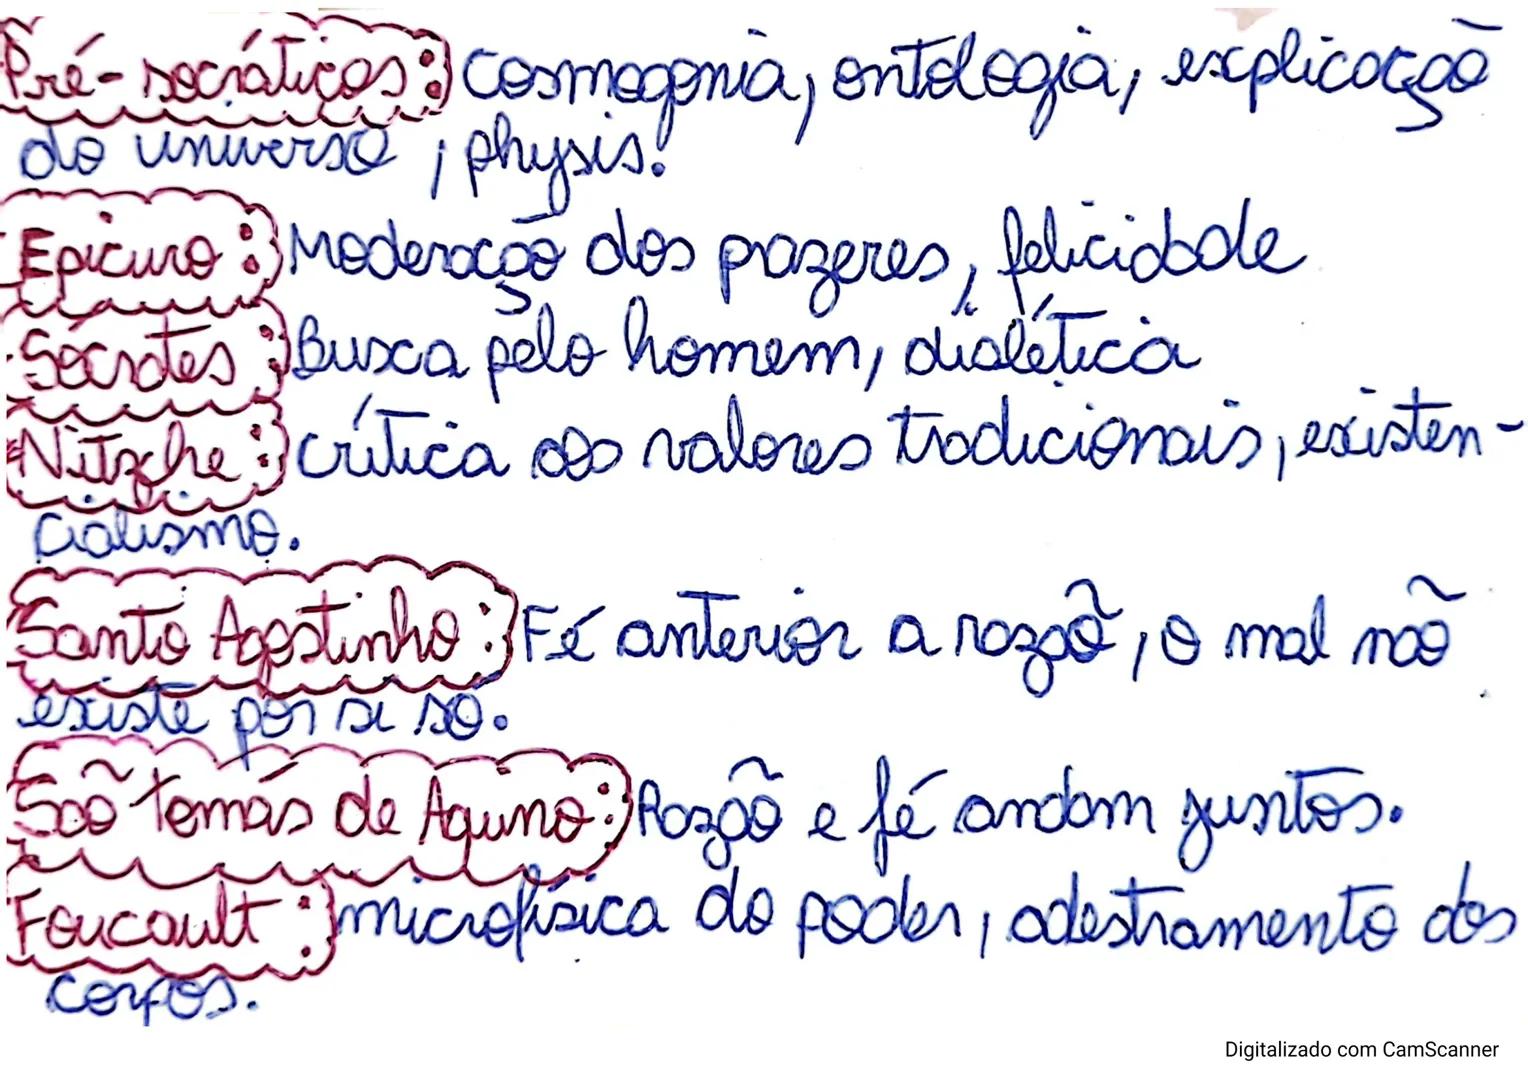 Pré-socráticos: Cosmogonia, ontologia, explicação
do universo, physis.
Epicuro: Moderação dos prazeres, felicidade
Sócrates: Busca pelo homem, dialética
Nitzche: crítica aos valores tradicionais, existen-
cialismo.
Santo Agostinho: Fé anterior a razão, o mal não
existe por si só.
São Tomás de Aquino: Razão e fé andam juntos.
Foucault: microfísica do poder, adestramento dos
corpos.
Digitalizado com CamScanner